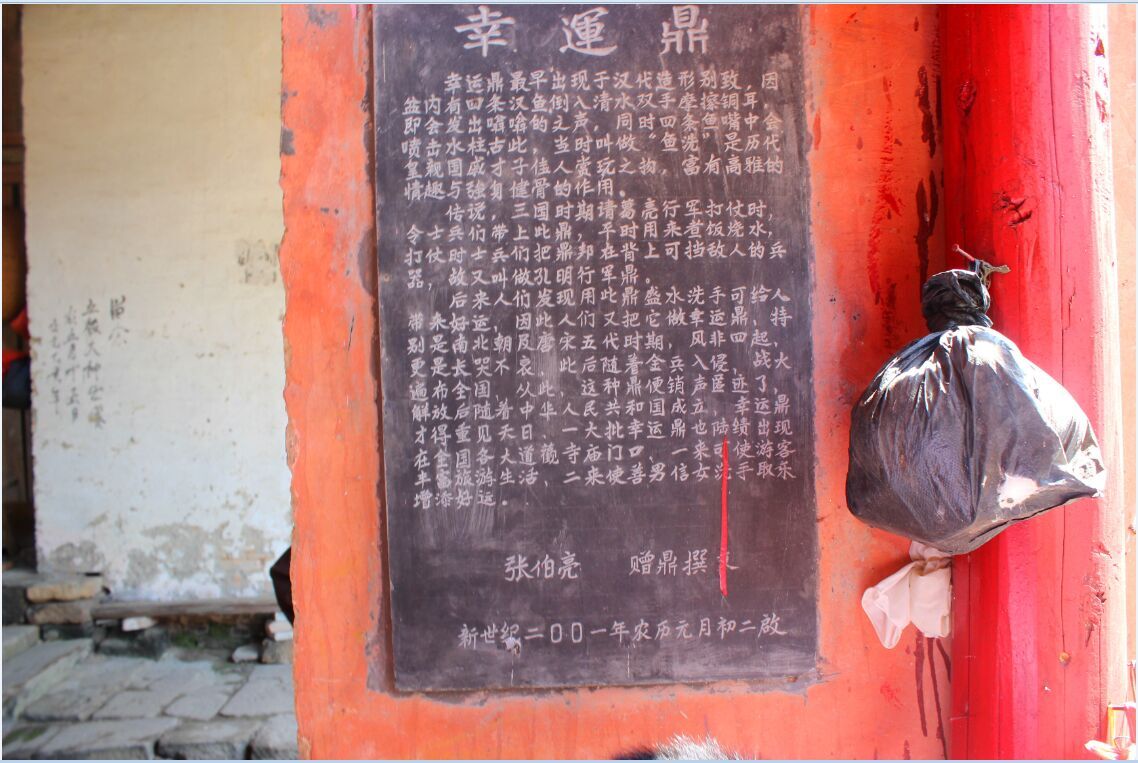 幸運鼎
幸运鼎最早出现于汉代造形别致,因
盆内有四条汉鱼倒入清水双手摩擦铜耳
即会发出嗡嗡的之声,同时四条鱼嘴中会
喷水柱此当时叫做鱼洗是历代
皇亲国戚才子佳人赏玩之物,富有高雅的
情趣与强身健骨的作用。
传说,三国时期请葛亮行军打仗时,
令士兵们带上此鼎,平时用来煮饭烧水,
打仗时士兵们把鼎邦在背上可挡敌人的兵
器,故又叫做孔明行军鼎。
后来人们发现用此鼎盛水洗手可给人
带来好运因此人们又把它做幸运鼎,特
别是南北朝及唐宋五代时期,风非四起,
更是长哭不哀,此后随着金兵入侵,战火
遍布全国,从此这种鼎便销声匿迹了,
解放后随着中华人民共和国成立幸运鼎
才得重见天日、一大批幸运鼎也陆绩出现
在全国各大道观、寺庙门口,一来可使游客
丰富旅游生活、二来使善男信女洗手取乐
增添好运。
张伯亮 赠鼎撰
新世纪二〇〇一年农历元月初二啟